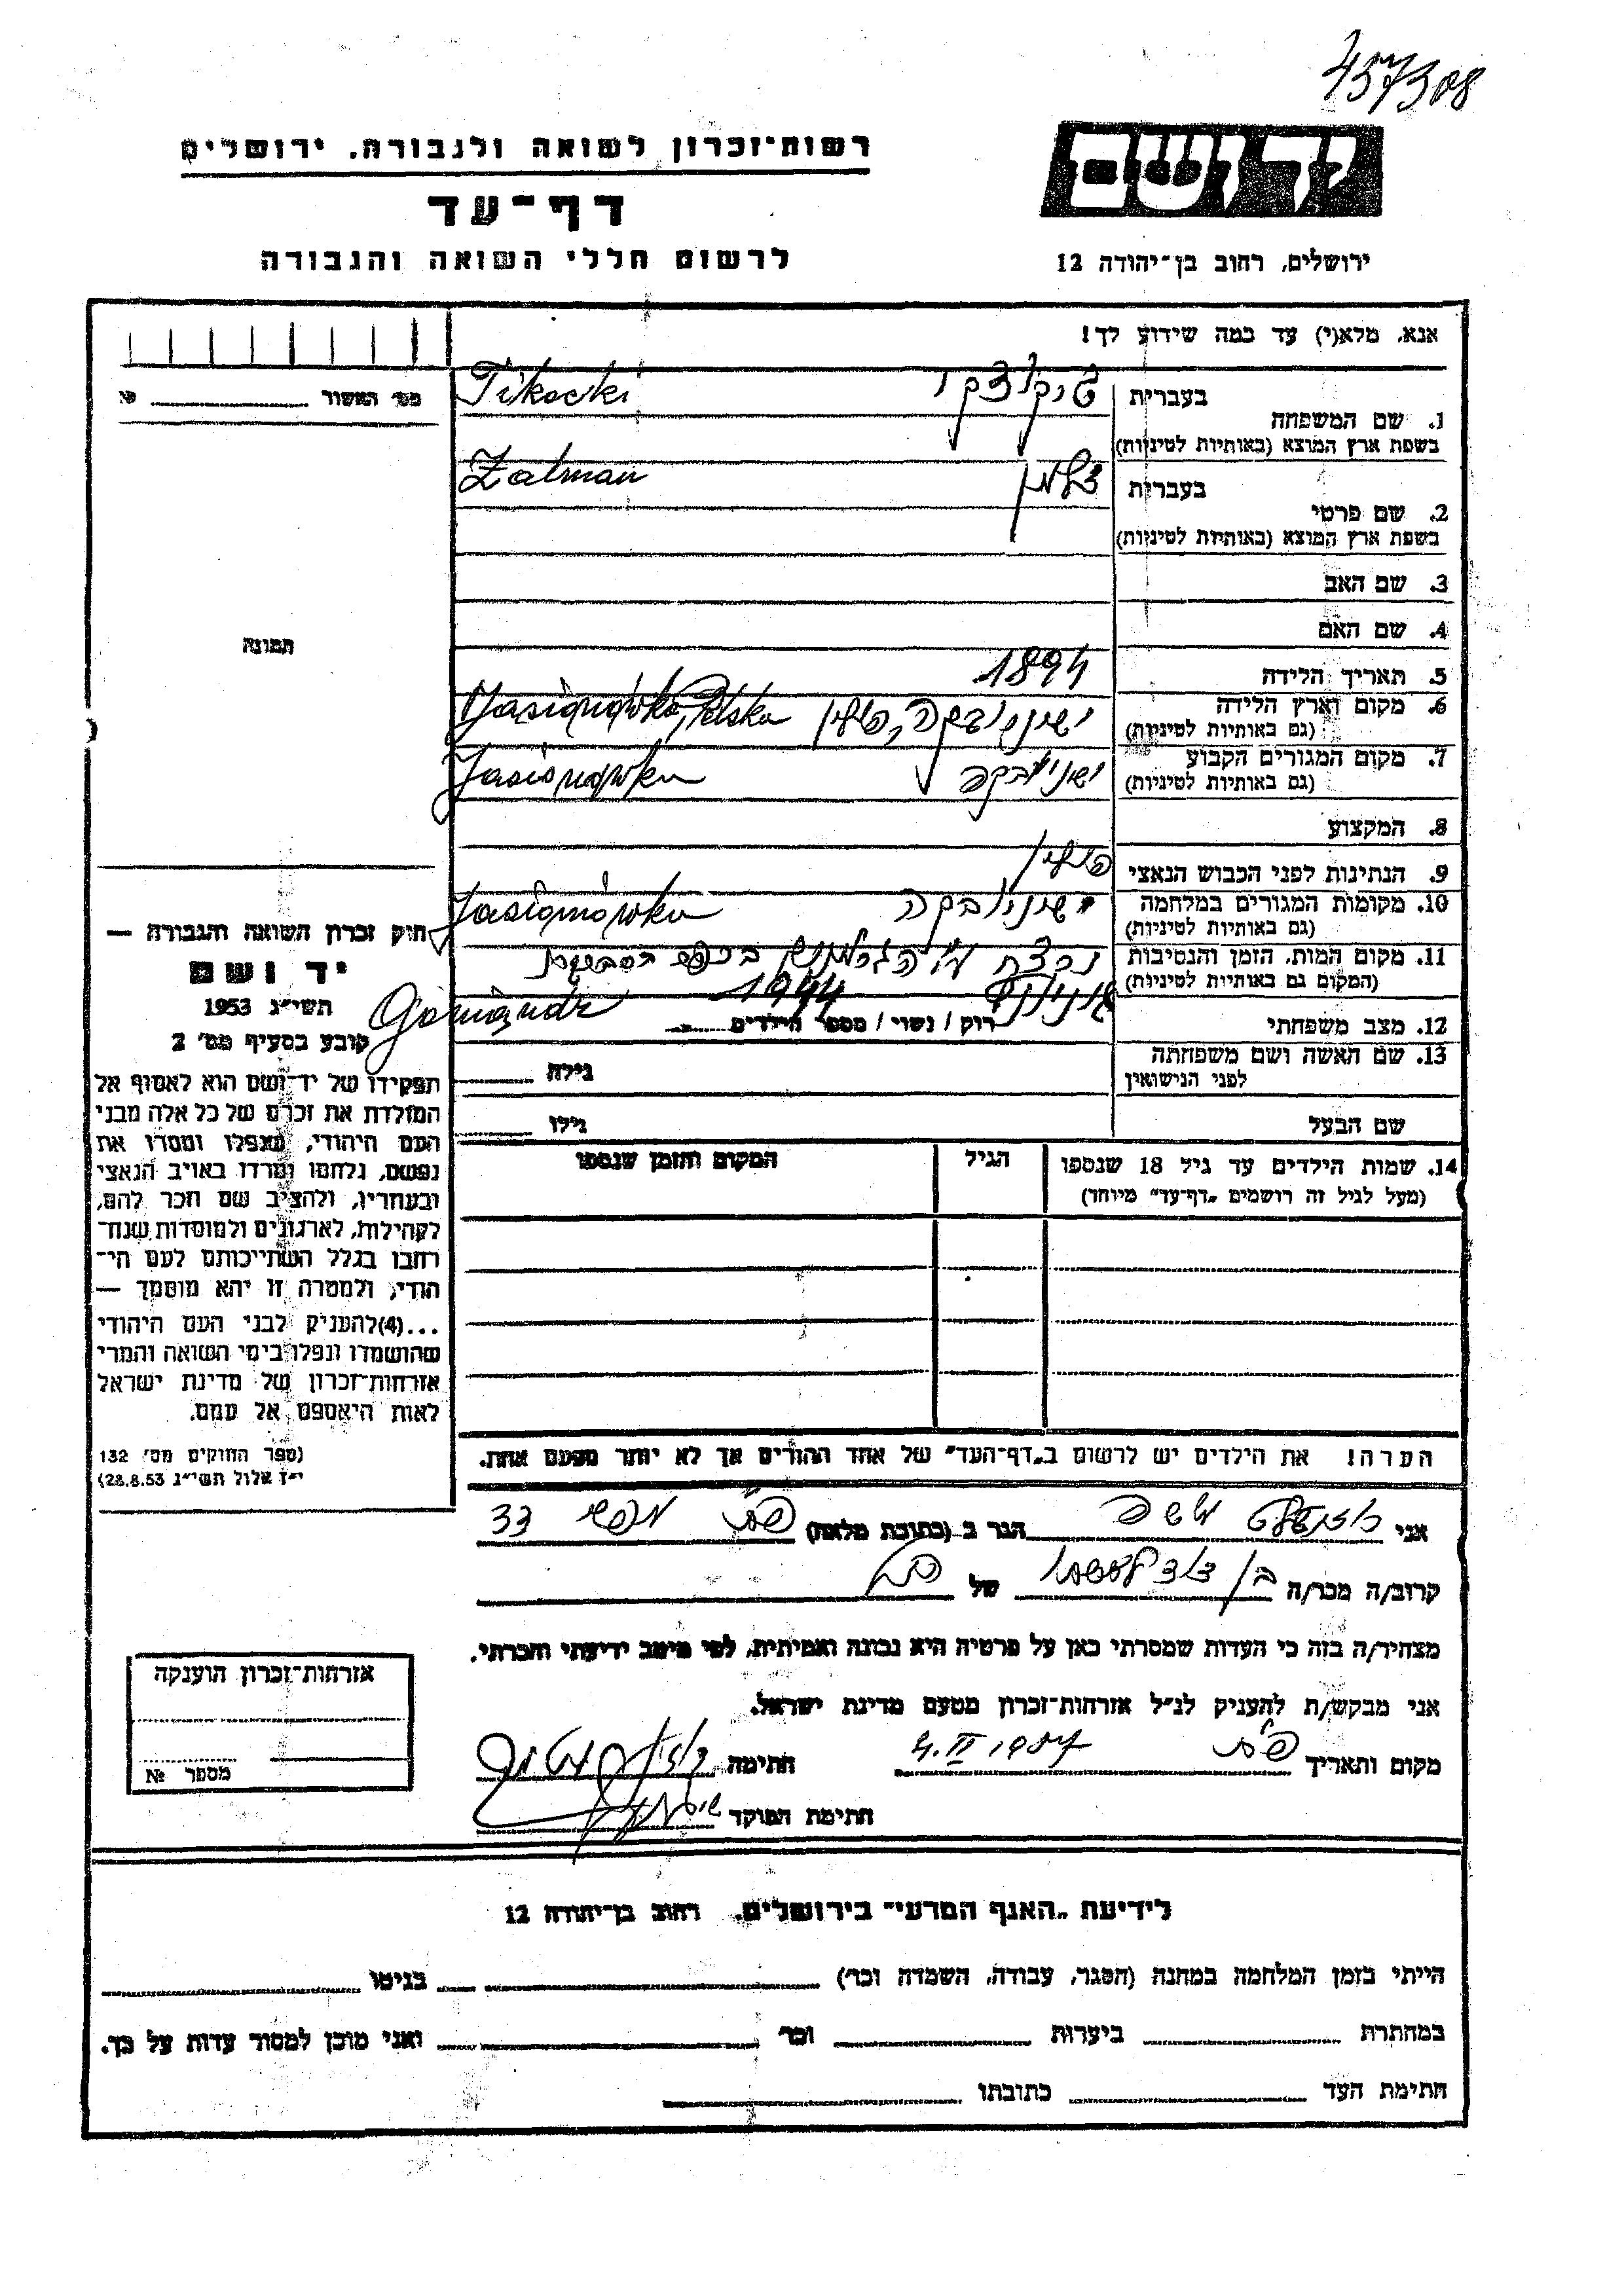 457308
רשות־זכרון לשואה ולגבורה, ירושלים
דף־עד
לרשום חללי השואה והגבורה
יד ושם
ירושלים, רחוב בן־יהודה 12
אנא, מלא(י) עד כמה שידוע לך!
מס׳ האשור № 
1. שם המשפחה
בעברית טיקוצקי
בשפת ארץ המוצא (באותיות לטיניות) Tikocki
2. שם פרטי
בעברית זלמן
בשפת ארץ המוצא (באותיות לטיניות) Zalman
3. שם האב
4. שם האם
תמונה
5. תאריך הלידה 1894
6. מקום וארץ הלידה
(גם באותיות לטיניות) פולין Jasionówka, Polska
7. מקום המגורים הקבוע
(גם באותיות לטיניות) Jasionówka
8. המקצוע
9. הנתינות לפני הכבוש הנאצי פולין
10. מקומות המגורים במלחמה
(גם באותיות לטיניות) Jasionówka
11. מקום המות, הזמן והנסיבות
(המקום גם באותיות לטיניות) נרצח ע״י 1944
12. מצב משפחתי רוק / נשוי / מספר הילדים
13. שם האשה ושם משפחתה
לפני הנישואין גילה
שם הבעל גילו
14. שמות הילדים עד גיל 18 שנספו הגיל המקום והזמן שנספו
(מעל לגיל זה רושמים „דף־עד” מיוחד)
חוק זכרון השואה והגבורה —
יד ושם
תשי״ג 1953
קובע בסעיף מס׳ 2
תפקידו של יד־ושם הוא לאסוף אל
המולדת את זכרם של כל אלה מבני
העם היהודי, שנפלו ומסרו את
נפשם, נלחמו ומרדו באויב הנאצי
ובעוזריו, ולהציב שם וזכר להם,
לקהילות, לארגונים ולמוסדות שנח־
רבו בגלל השתייכותם לעם הי־
הודי, ולמטרה זו יהא מוסמך —
...(4) להעניק לבני העם היהודי
שהושמדו ונפלו בימי השואה והמרי
אזרחות־זכרון של מדינת ישראל
לאות היאספם אל עמם.
(ספר החוקים מס׳ 132
י״ז אלול תשי״ג 28.8.53)
הערה! את הילדים יש לרשום ב„דף־העד” של אחד ההורים אך לא יותר מפעם אחת.
אני משה הגר ב (כתובת מלאה) 33
קרוב/ה מכר/ה בן של
מצהיר/ה בזה כי העדות שמסרתי כאן על פרטיה היא נכונה ואמיתית, לפי מיטב ידיעתי והכרתי.
אני מבקש/ת להעניק לנ״ל אזרחות־זכרון מטעם מדינת ישראל.
מקום ותאריך 4.II 1957 חתימה
חתימת הפוקד
אזרחות־זכרון הוענקה
מספר №
לידיעת „האגף המדעי” בירושלים, רחוב בן־יהודה 12
הייתי בזמן המלחמה במחנה (הסגר, עבודה, השמדה וכו׳) בגיטו
במחתרת ביערות וכו׳ ואני מוכן למסור עדות על כך.
חתימת העד כתובתו